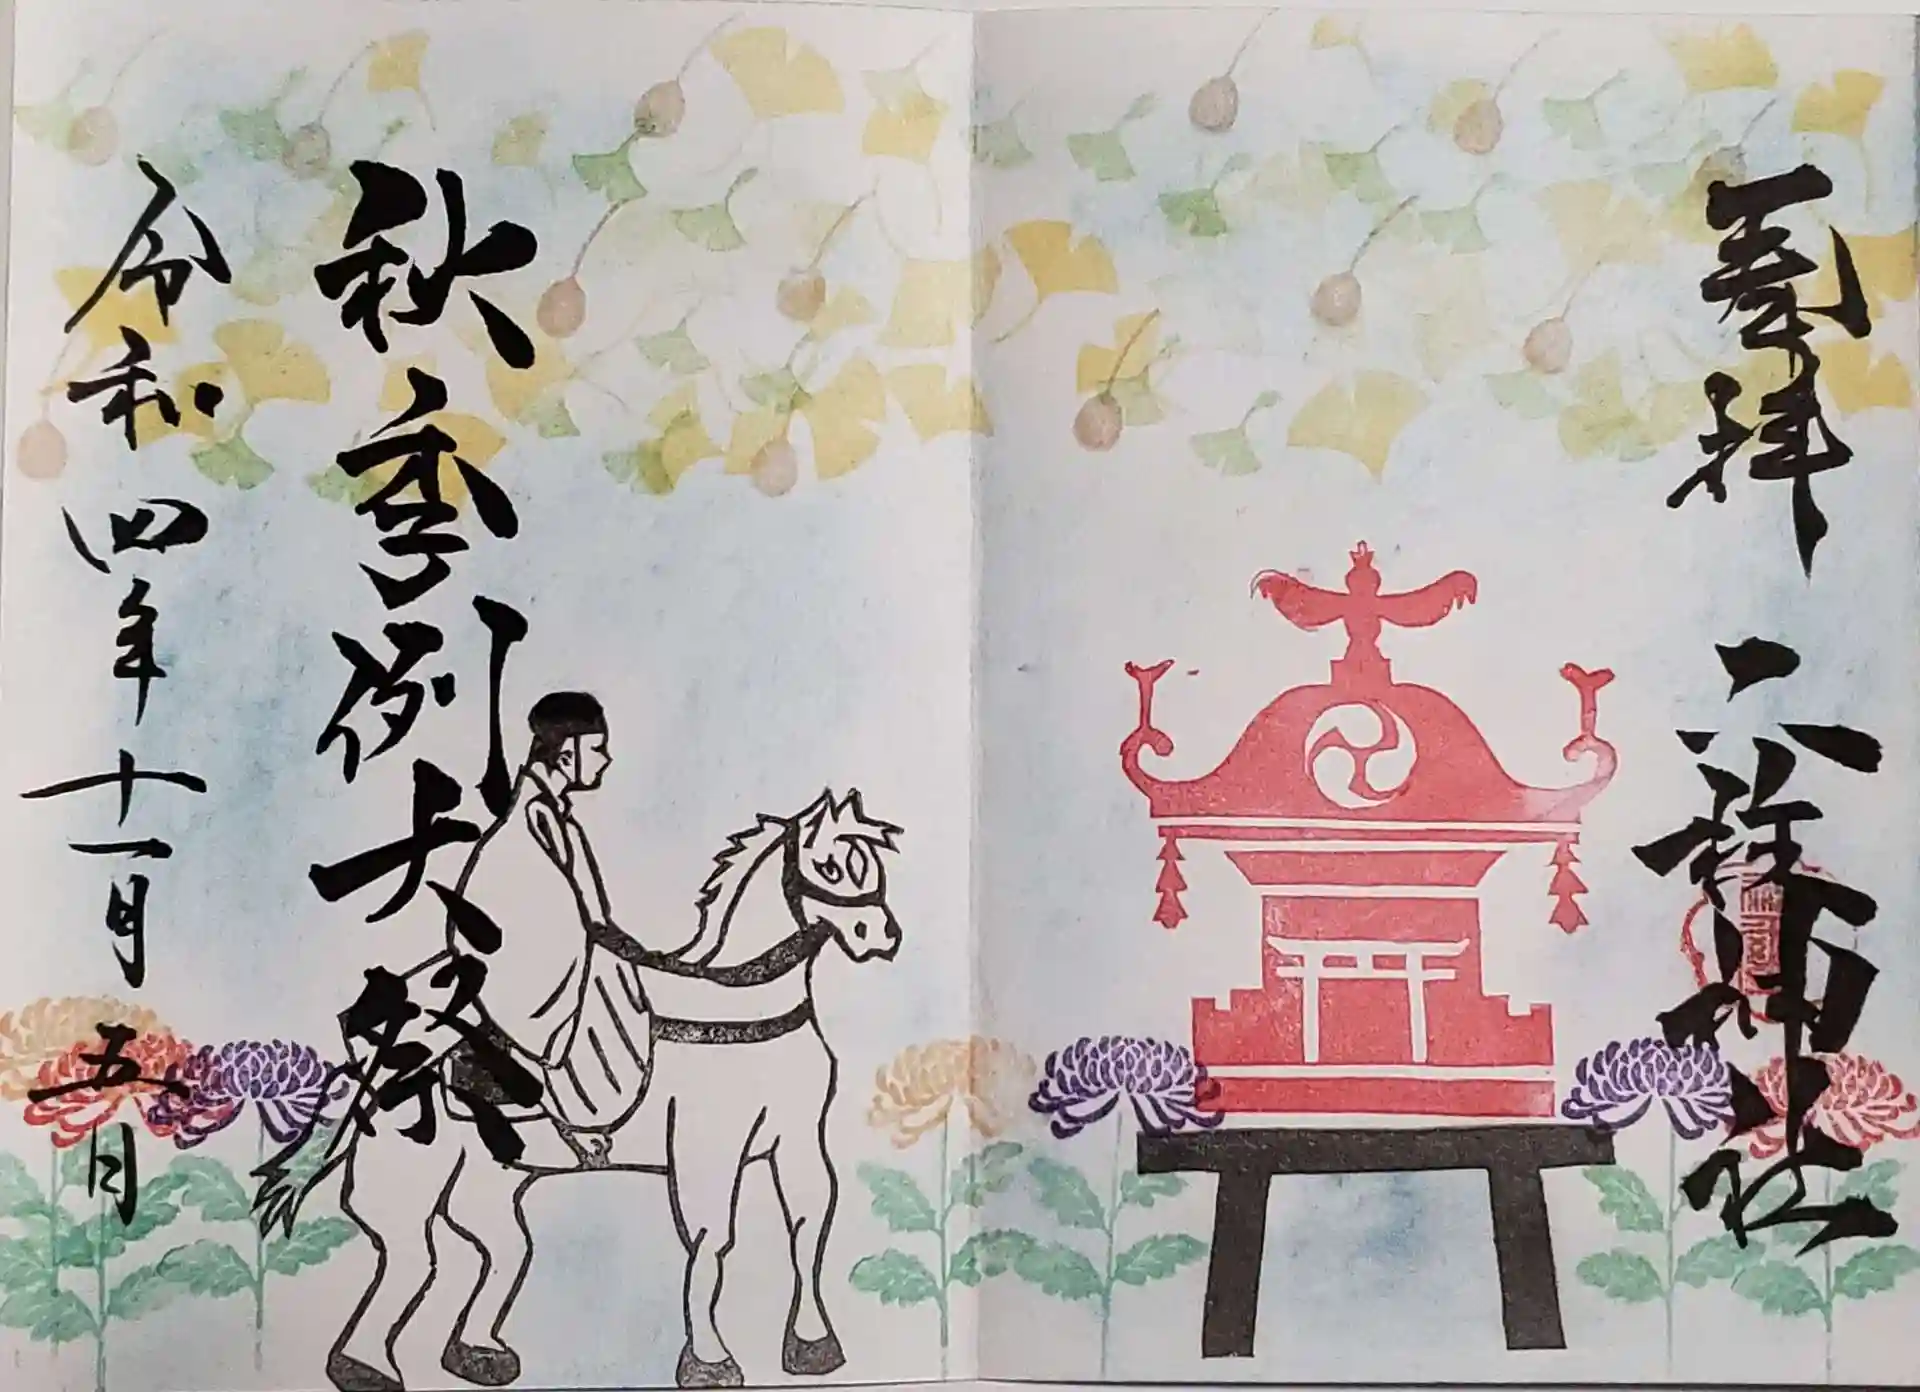 奉拝
神社
秋季例大祭
令和四年十一月五日